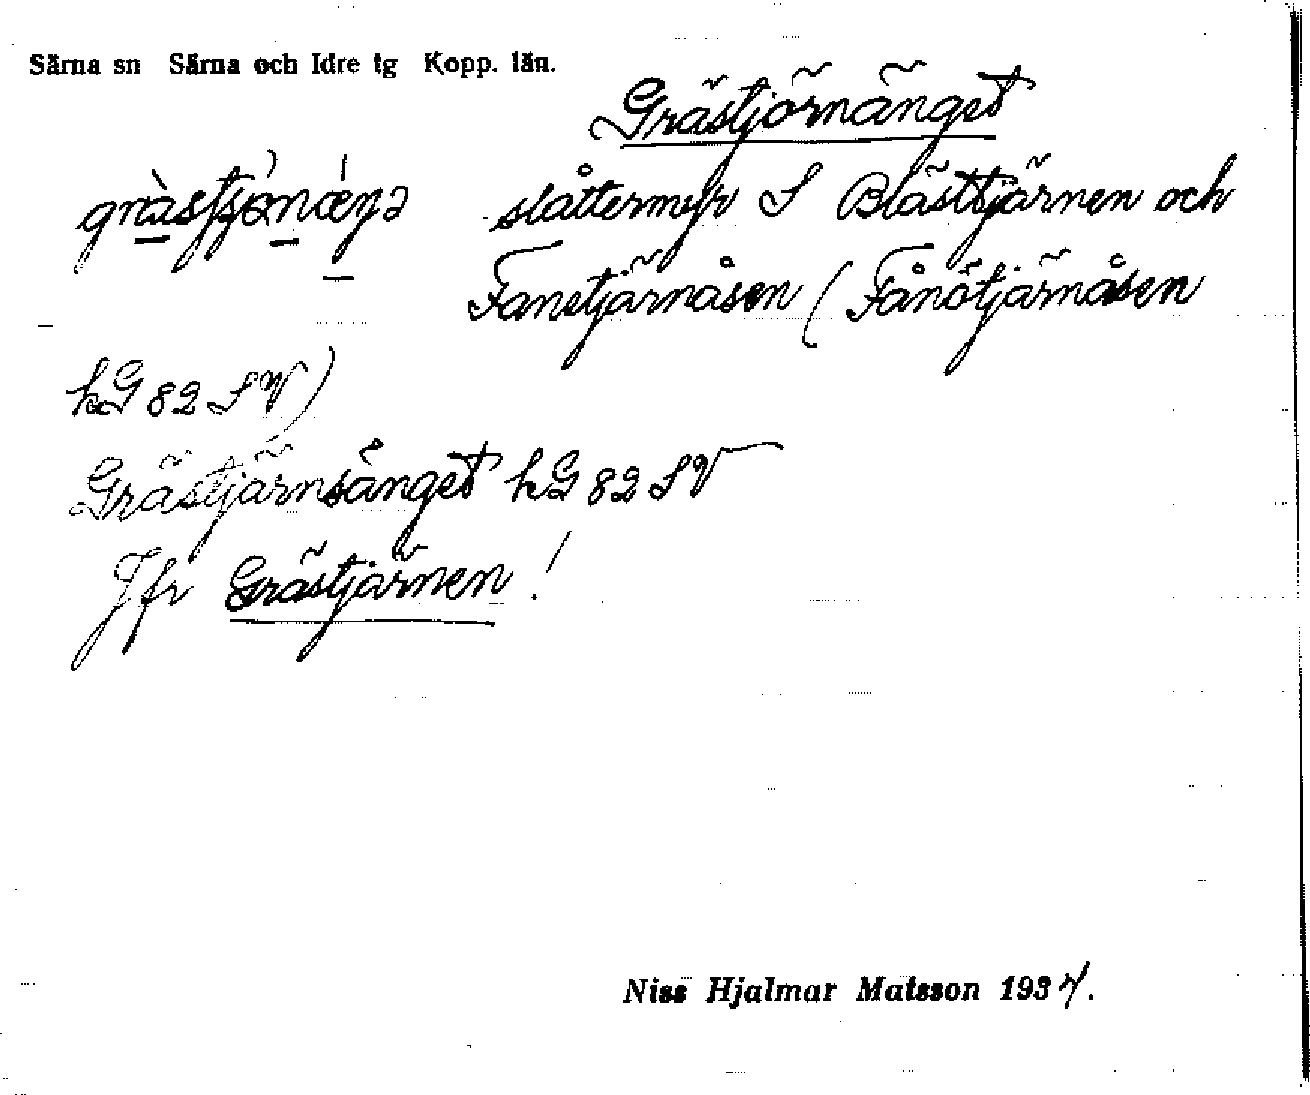 Särna sn Särna och Idre tg Kopp. län.
Grästjörnänget
slåttermyr S Blästtjärnen och
Fanetjärnåsen (Fånötjärnåsen
hG 82 SV)
Grästjärnsänget hG 82 SV
Jfr Grästjärnen !
Niss Hjalmar Matsson 1934.